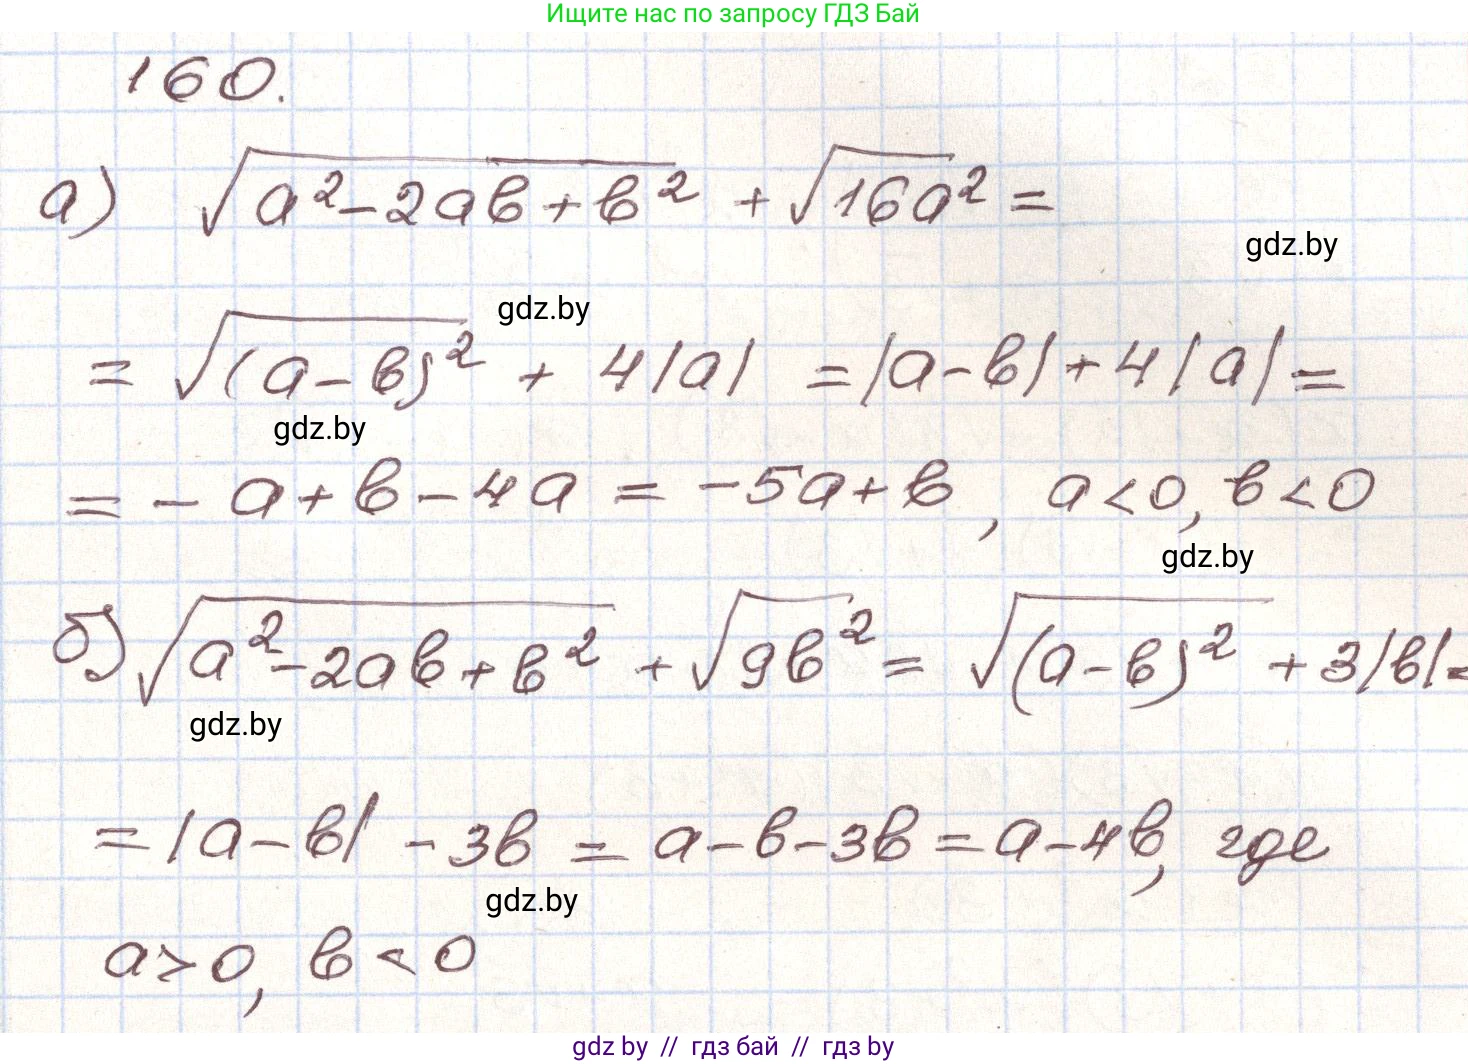 Ищите нас по запросу ГДЗ Бай
160.
а) √(a² - 2ab + b²) + √16a² =
gdz.by
gdz.by
= √(a - b)² + 4|a| = |a - b| + 4|a| =
gdz.by
= - a + b - 4a = -5a + b, a < 0, b < 0
gdz.by
б) √(a² - 2ab + b²) + √9b² = √(a - b)² + 3|b| =
gdz.by
= |a - b| - 3b = a - b - 3b = a - 4b, где
gdz.by
a > 0, b < 0
gdz by // гдз бай // гдз by